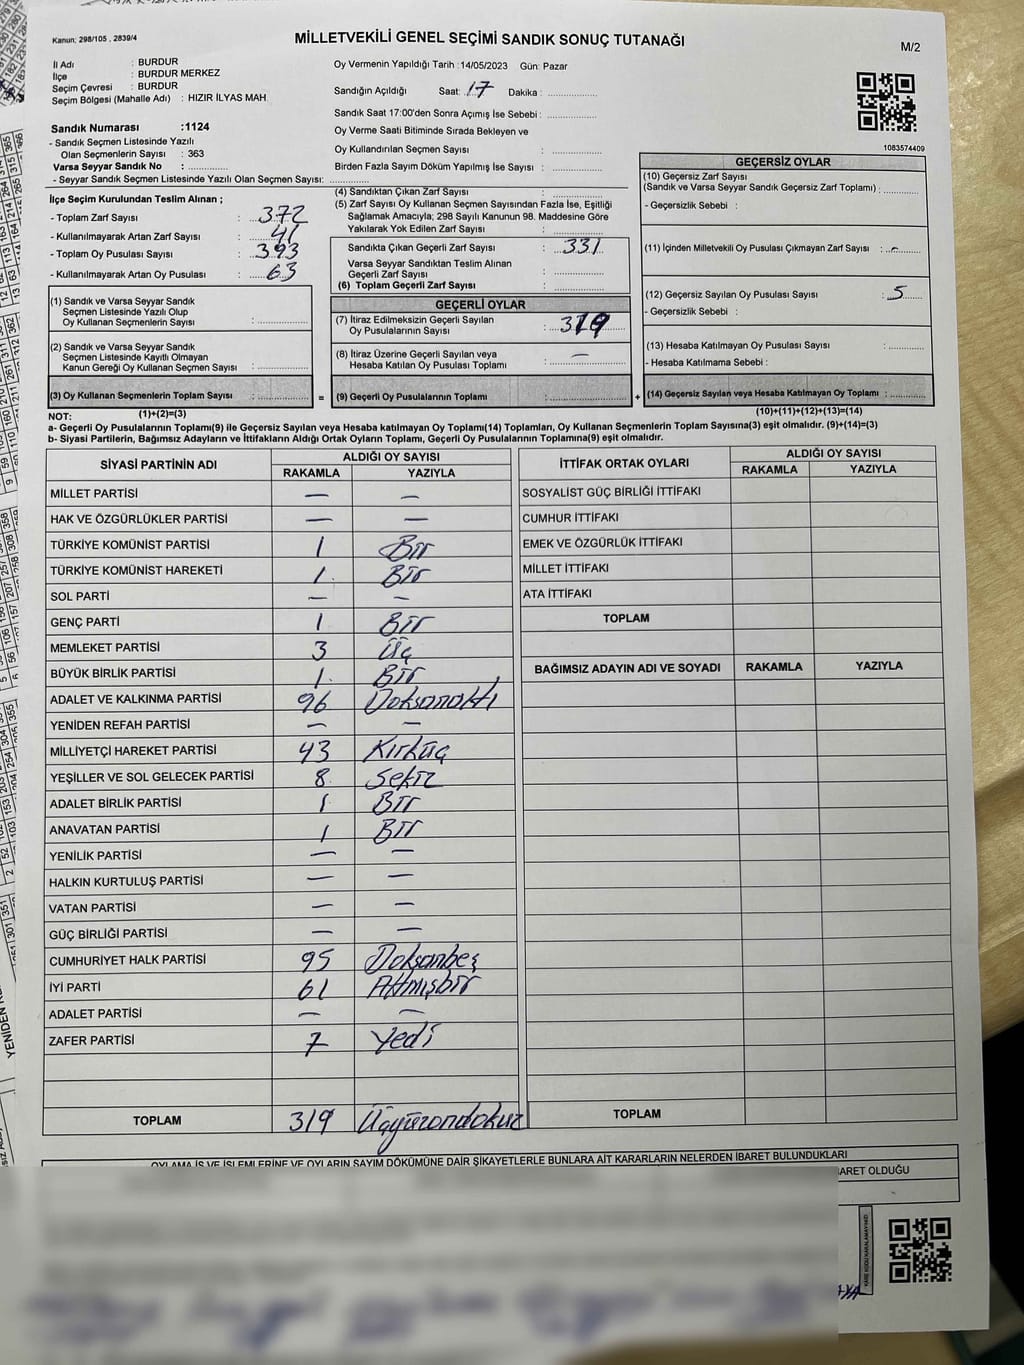 Kanun: 298/105 , 2839/4
MİLLETVEKİLİ GENEL SEÇİMİ SANDIK SONUÇ TUTANAĞI
M/2
İl Adı : BURDUR
İlçe : BURDUR MERKEZ
Seçim Çevresi : BURDUR
Seçim Bölgesi (Mahalle Adı) : HIZIR İLYAS MAH.
Sandık Numarası :1124
- Sandık Seçmen Listesinde Yazılı
Olan Seçmenlerin Sayısı : 363
Varsa Seyyar Sandık No :
- Seyyar Sandık Seçmen Listesinde Yazılı Olan Seçmen Sayısı:
Oy Vermenin Yapıldığı Tarih :14/05/2023 Gün: Pazar
Sandığın Açıldığı Saat: 17 Dakika :
Sandık Saat 17:00'den Sonra Açımış İse Sebebi :
Oy Verme Saati Bitiminde Sırada Bekleyen ve
Oy Kullandırılan Seçmen Sayısı :
Birden Fazla Sayım Döküm Yapılmış İse Sayısı :
1083574409
İlçe Seçim Kurulundan Teslim Alınan ;
- Toplam Zarf Sayısı : 372
- Kullanılmayarak Artan Zarf Sayısı : 41
- Toplam Oy Pusulası Sayısı : 393
- Kullanılmayarak Artan Oy Pusulası : 63
(1) Sandık ve Varsa Seyyar Sandık
Seçmen Listesinde Yazılı Olup
Oy Kullanan Seçmenlerin Sayısı :
(2) Sandık ve Varsa Seyyar Sandık
Seçmen Listesinde Kayıtlı Olmayan
Kanun Gereği Oy Kullanan Seçmen Sayısı :
(3) Oy Kullanan Seçmenlerin Toplam Sayısı :
(4) Sandıktan Çıkan Zarf Sayısı :
(5) Zarf Sayısı Oy Kullanan Seçmen Sayısından Fazla İse, Eşitliği
Sağlamak Amacıyla; 298 Sayılı Kanunun 98. Maddesine Göre
Yakılarak Yok Edilen Zarf Sayısı :
Sandıkta Çıkan Geçerli Zarf Sayısı : 331
Varsa Seyyar Sandıktan Teslim Alınan
Geçerli Zarf Sayısı :
(6) Toplam Geçerli Zarf Sayısı :
GEÇERLİ OYLAR
(7) İtiraz Edilmeksizin Geçerli Sayılan
Oy Pusulalarının Sayısı : 319
(8) İtiraz Üzerine Geçerli Sayılan veya
Hesaba Katılan Oy Pusulası Toplamı : —
= (9) Geçerli Oy Pusulalarının Toplamı :
GEÇERSİZ OYLAR
(10) Geçersiz Zarf Sayısı
(Sandık ve Varsa Seyyar Sandık Geçersiz Zarf Toplamı) :
- Geçersizlik Sebebi :
(11) İçinden Milletvekili Oy Pusulası Çıkmayan Zarf Sayısı : -
(12) Geçersiz Sayılan Oy Pusulası Sayısı : 5
- Geçersizlik Sebebi :
(13) Hesaba Katılmayan Oy Pusulası Sayısı :
- Hesaba Katılmama Sebebi :
+ (14) Geçersiz Sayılan veya Hesaba Katılmayan Oy Toplamı :
NOT: (1)+(2)=(3)
(10)+(11)+(12)+(13)=(14)
a- Geçerli Oy Pusulalarının Toplamı(9) ile Geçersiz Sayılan veya Hesaba katılmayan Oy Toplamı(14) Toplamları, Oy Kullanan Seçmenlerin Toplam Sayısına(3) eşit olmalıdır. (9)+(14)=(3)
b- Siyasi Partilerin, Bağımsız Adayların ve İttifakların Aldığı Ortak Oyların Toplamı, Geçerli Oy Pusulalarının Toplamına(9) eşit olmalıdır.
SİYASİ PARTİNİN ADI ALDIĞI OY SAYISI
RAKAMLA YAZIYLA
MİLLET PARTİSİ — —
HAK VE ÖZGÜRLÜKLER PARTİSİ — —
TÜRKİYE KOMÜNİST PARTİSİ 1 Bir
TÜRKİYE KOMÜNİST HAREKETİ 1 Bir
SOL PARTİ — —
GENÇ PARTİ 1 Bir
MEMLEKET PARTİSİ 3 Üç
BÜYÜK BİRLİK PARTİSİ 1 Bir
ADALET VE KALKINMA PARTİSİ 96 Doksanaltı
YENİDEN REFAH PARTİSİ — —
MİLLİYETÇİ HAREKET PARTİSİ 43 Kırküç
YEŞİLLER VE SOL GELECEK PARTİSİ 8 Sekiz
ADALET BİRLİK PARTİSİ 1 Bir
ANAVATAN PARTİSİ 1 Bir
YENİLİK PARTİSİ — —
HALKIN KURTULUŞ PARTİSİ — —
VATAN PARTİSİ — —
GÜÇ BİRLİĞİ PARTİSİ — —
CUMHURİYET HALK PARTİSİ 95 Doksanbeş
İYİ PARTİ 61 Altmışbir
ADALET PARTİSİ — —
ZAFER PARTİSİ 7 Yedi
TOPLAM 319 Üçyüzondokuz
İTTİFAK ORTAK OYLARI ALDIĞI OY SAYISI
RAKAMLA YAZIYLA
SOSYALİST GÜÇ BİRLİĞİ İTTİFAKI
CUMHUR İTTİFAKI
EMEK VE ÖZGÜRLÜK İTTİFAKI
MİLLET İTTİFAKI
ATA İTTİFAKI
TOPLAM
BAĞIMSIZ ADAYIN ADI VE SOYADI RAKAMLA YAZIYLA
TOPLAM
OYLAMA İŞ VE İŞLEMLERİNE VE OYLARIN SAYIM DÖKÜMÜNE DAİR ŞİKAYETLERLE BUNLARA AİT KARARLARIN NELERDEN İBARET BULUNDUKLARI
BARET OLDUĞU